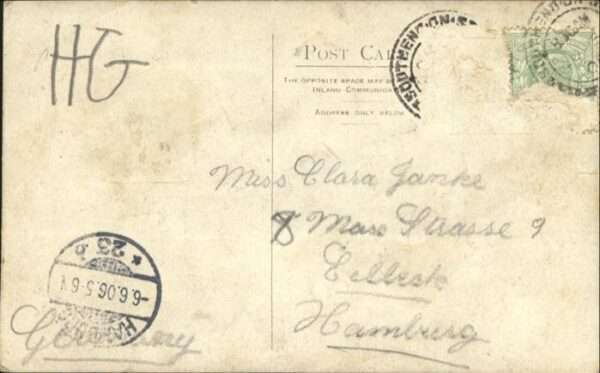 HG
POST CA
SOUTHEND-ON-S
THE OPPOSITE SPACE MAY
INLAND COMMUNICA
ADDRESS ONLY BELOW
Miss Clara Janke
8 Marx Strasse 9
Eilbeck
Hamburg
Germany
* 23 b
-6.6.06.5-6 V
HAMBURG